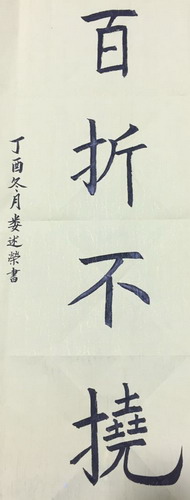 百折不撓
丁酉冬月娄述榮書